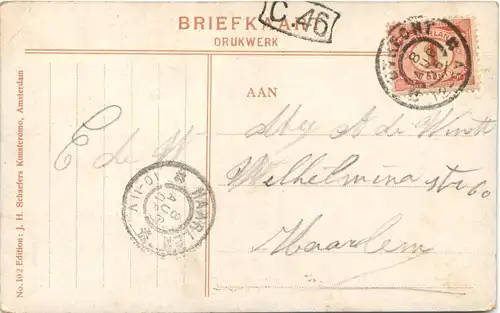 BRIEFKAAR
DRUKWERK
C 46
AAN
Mej A de Winst
C de W
Wilhelmina str 60
Haarlem
HAARLEM
10-11V
8
AUG
No. 102 Edition: J. H. Schaefers Kunstcromo, Amsterdam